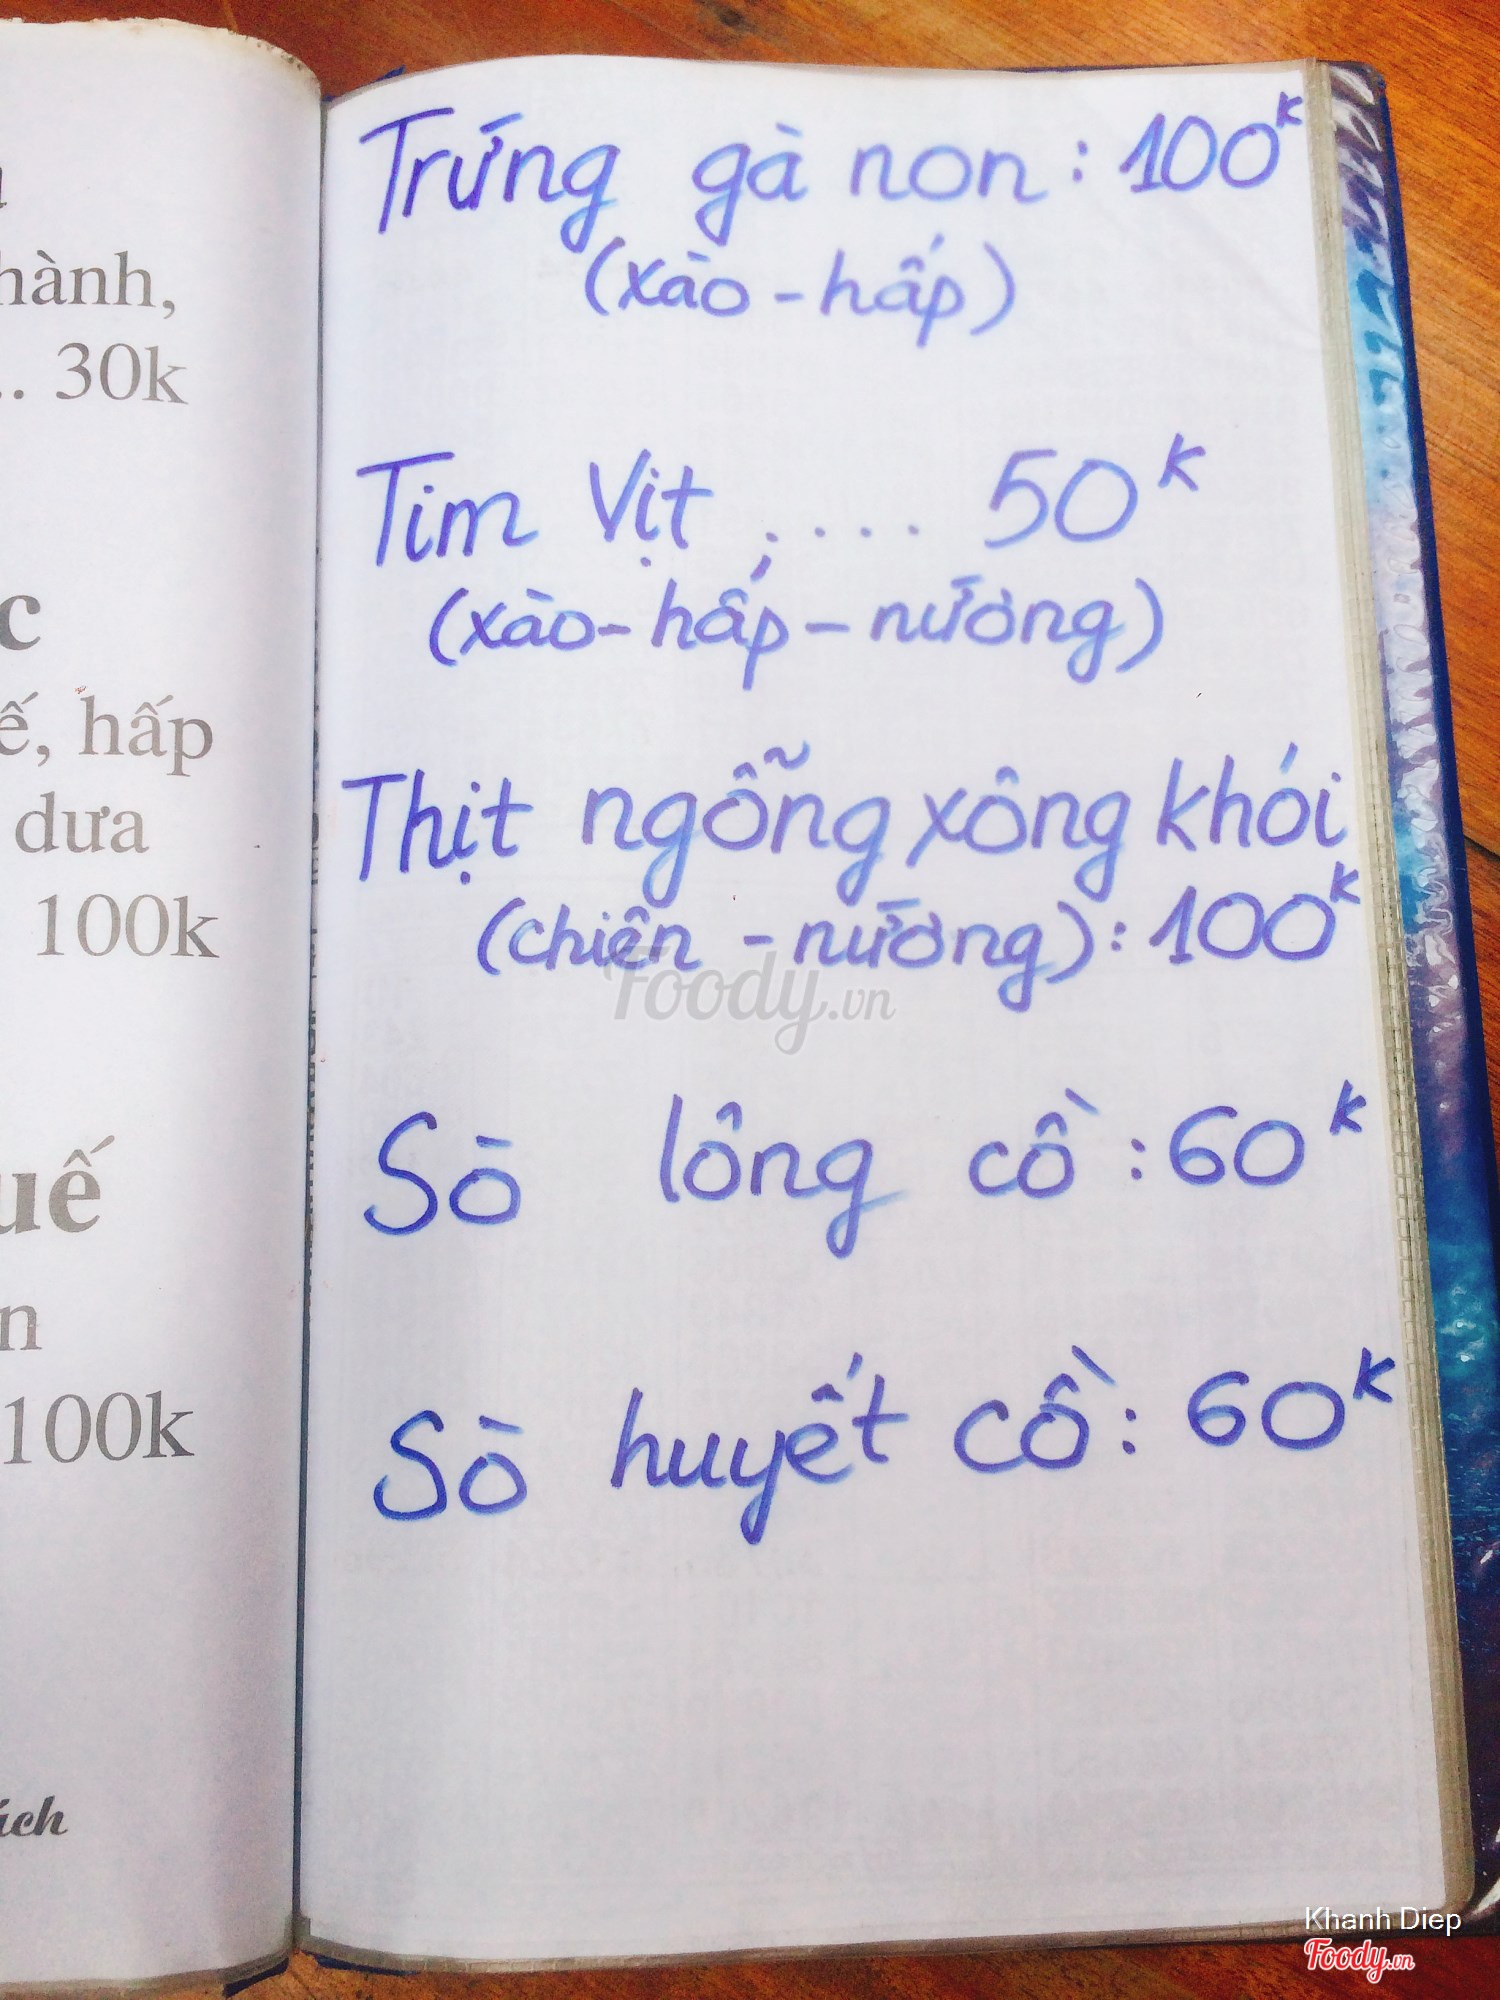 hành,
.. 30k
c
ế, hấp
dưa
100k
uế
n
100k
ách
Trứng gà non : 100k
(xào - hấp)
Tim Vịt ..... 50k
(xào - hấp - nướng)
Thịt ngỗng xông khói
(chiên - nướng) : 100k
Sò lông cồ : 60k
Sò huyết cồ : 60k
Foody.vn
Khanh Diep
Foody.vn